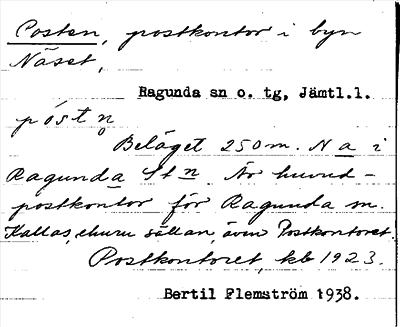 Posten, postkontor i byn
Näset,
Ragunda sn o. tg, Jämtl.l.
póstn̥
Beläget 250 m. N a i
Ragunda St n Är huvud-
postkontor för Ragunda sn.
Kallas, ehuru sällan, även Postkontoret.
Postkontoret, kb 1923.
Bertil Flemström 1938.